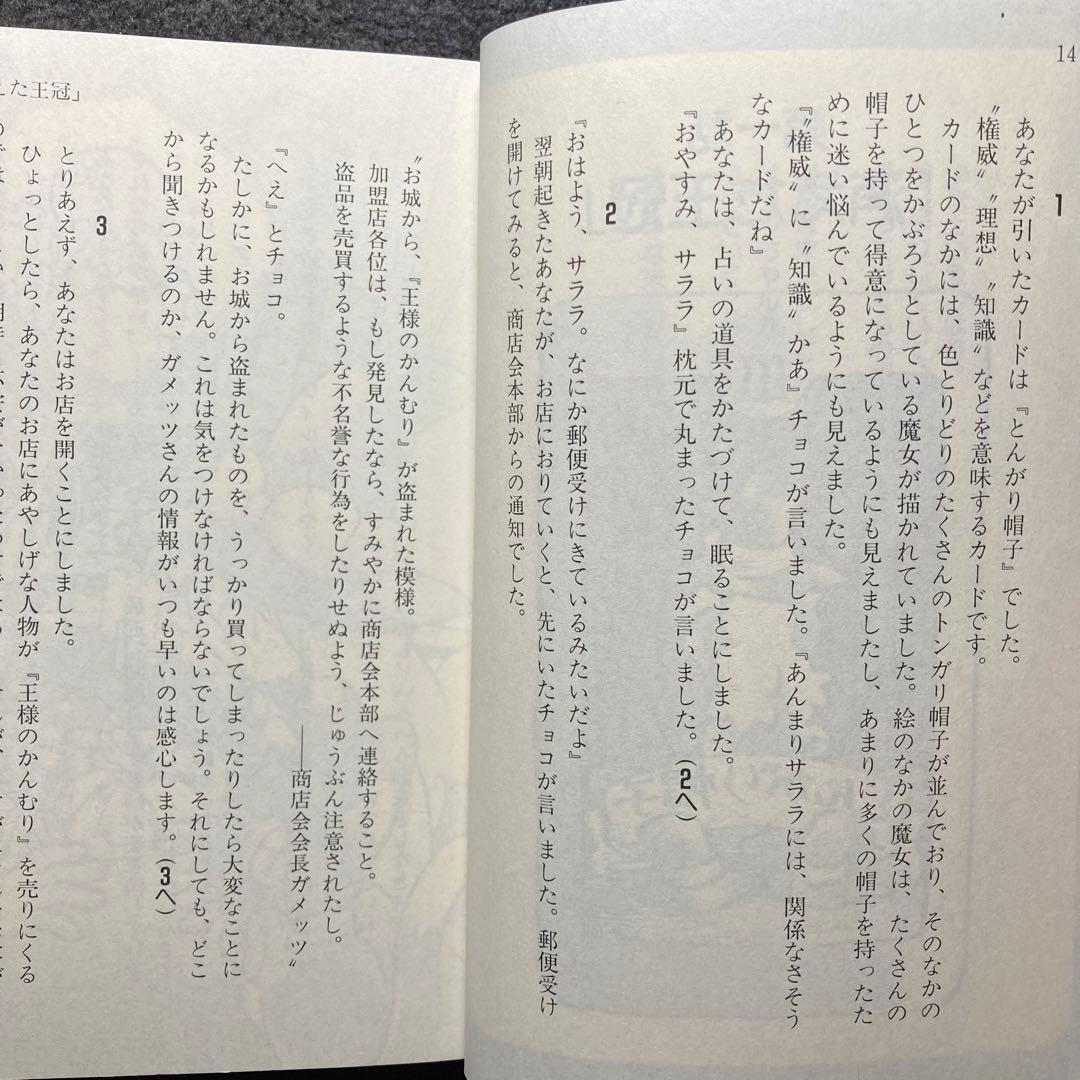 14
1
あなたが引いたカードは『とんがり帽子』でした。
〝権威〟〝理想〟〝知識〟などを意味するカードです。
カードのなかには、色とりどりのたくさんのトンガリ帽子が並んでおり、そのなかの
ひとつをかぶろうとしている魔女が描かれていました。絵のなかの魔女は、たくさんの
帽子を持って得意になっているようにも見えましたし、あまりに多くの帽子を持ったた
めに迷い悩んでいるようにも見えました。
『〝権威〟に〝知識〟かあ』チョコが言いました。『あんまりサララには、関係なさそう
なカードだね』
あなたは、占いの道具をかたづけて、眠ることにしました。
『おやすみ、サララ』枕元で丸まったチョコが言いました。(2へ)
2
『おはよう、サララ。なにか郵便受けにきているみたいだよ』
翌朝起きたあなたが、お店におりていくと、先にいたチョコが言いました。郵便受け
を開けてみると、商店会本部からの通知でした。
た王冠」
〝お城から、『王様のかんむり』が盗まれた模様。
加盟店各位は、もし発見したなら、すみやかに商店会本部へ連絡すること。
盗品を売買するような不名誉な行為をしたりせぬよう、じゅうぶん注意されたし。
――商店会会長ガメッツ〟
『へえ』とチョコ。
たしかに、お城から盗まれたものを、うっかり買ってしまったりしたら大変なことに
なるかもしれません。これは気をつけなければならないでしょう。それにしても、どこ
から聞きつけるのか、ガメッツさんの情報がいつも早いのは感心します。(3へ)
3
とりあえず、あなたはお店を開くことにしました。
ひょっとしたら、あなたのお店にあやしげな人物が『王様のかんむり』を売りにくる